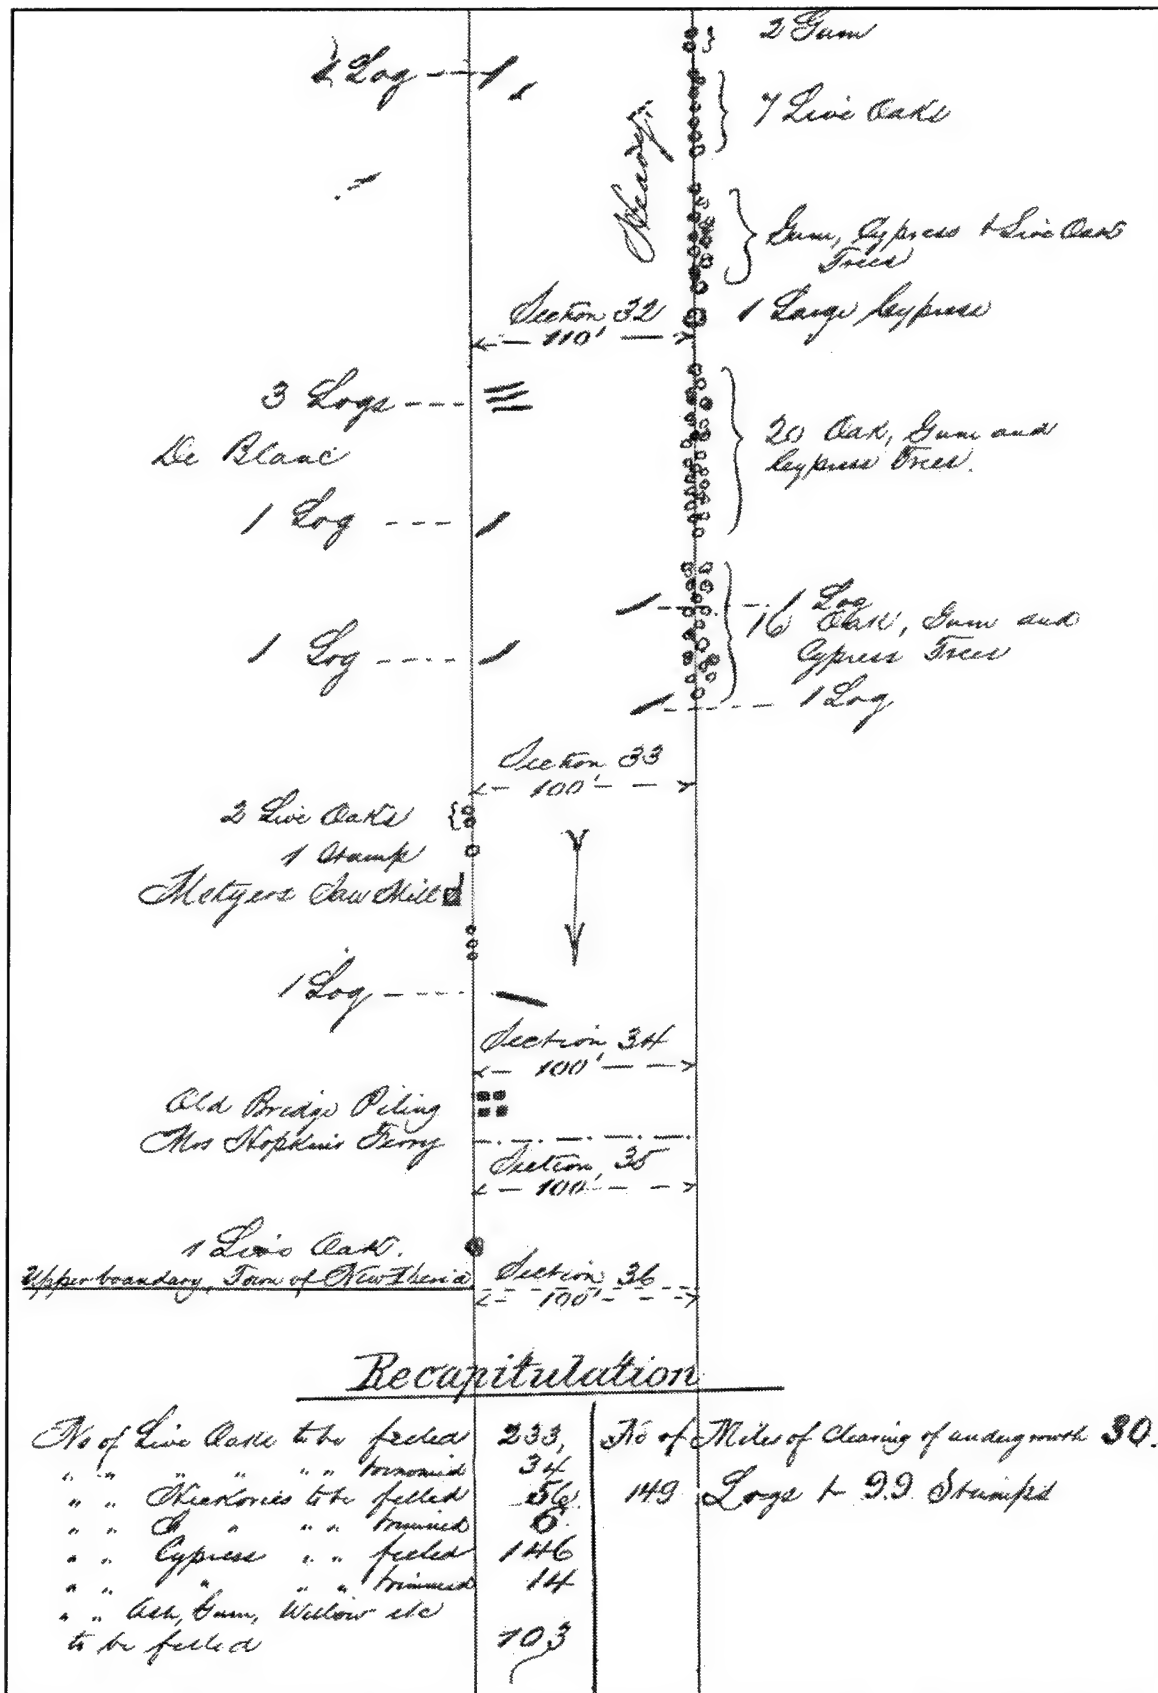 2 Gum
1 Log
7 Live Oaks
Heavy
Gum, Cypress & Live Oak
Trees
Section 32
110'
1 Large Cypress
3 Logs
20 Oak, Gum and
Cypress Trees.
De Blanc
1 Log
1 Log
16 Oak, Gum and
Cypress Trees
1 Log
1 Log
Section 33
100'
2 Live Oaks
1 Stump
Metzers Saw Mill
1 Log
Section 34
100'
Old Bridge Piling
Mrs Hopkins Ferry
Section 35
100'
1 Live Oak.
Upper boundary, Town of New Iberia
Section 36
100'
Recapitulation
No of Live Oaks to be felled 233,
" " " " " " trimmed 34
" " Hickories to be felled 56
" " " " " trimmed 6
" " Cypress " " felled 146
" " " " " trimmed 14
" " Ash, Gum, Willow etc
to be felled 103
No of Miles of Clearing of undergrowth 30.
149 Logs & 99 Stumps